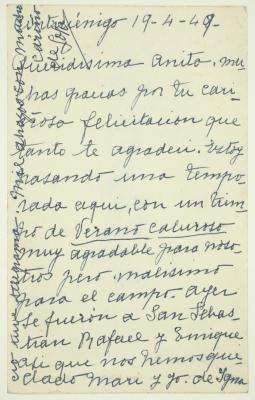 Cintruénigo 19-4-49.
Queridisima Anita. mu-
chas gracias por tu cari-
ñosa felicitacion que
tanto te agradeci. Estoy
pasando una tempo-
rada aqui, con un tiem-
po de Verano caluroso
muy agradable para noso-
tros pero, malisimo
para el campo. Ayer
se fueron a San Sebas-
tian Rafael y Enrique
asi que nos hemos que-
dado Mari y yo. de Igna
cio tuve telegrama. Mil abrazos con mucho
cariño
de